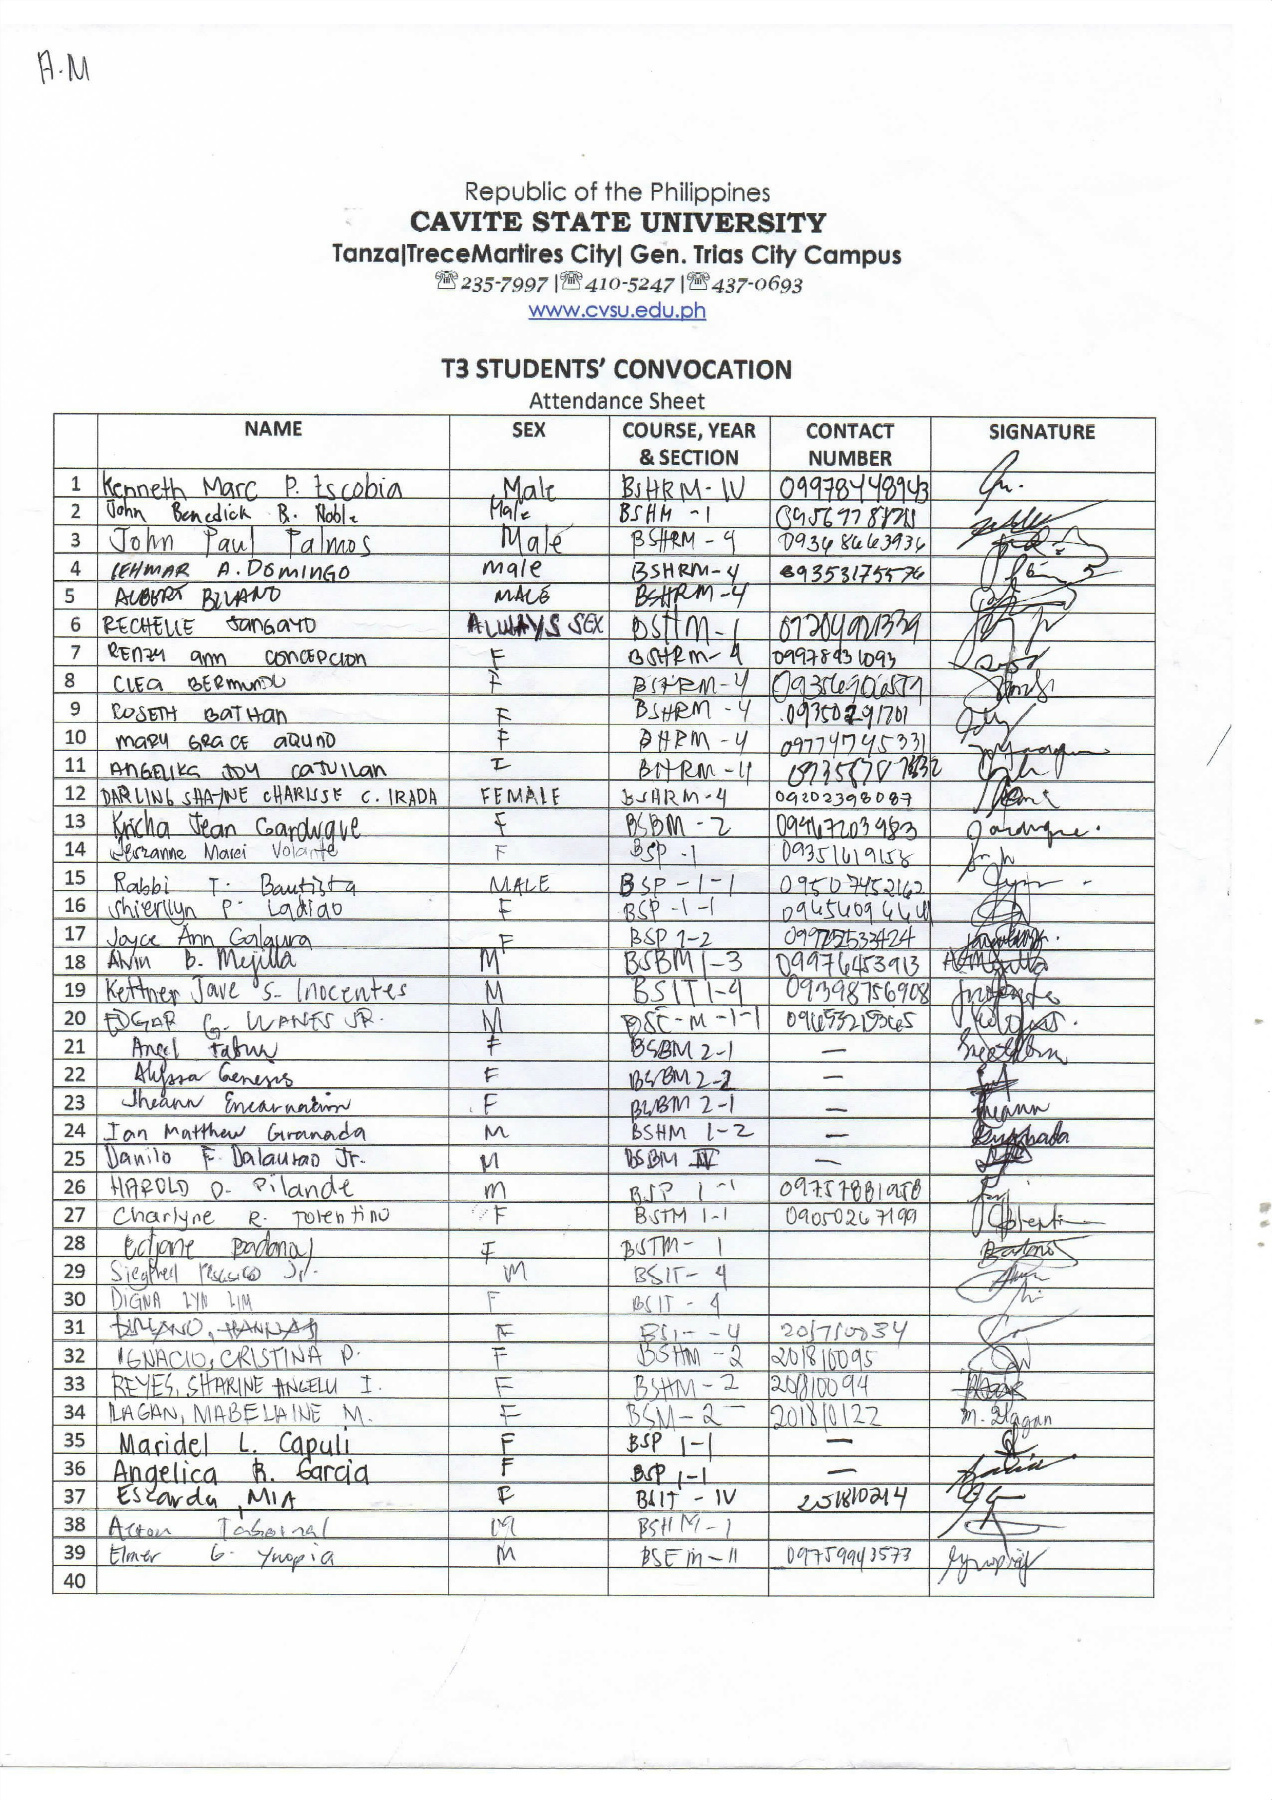 A.M
Republic of the Philippines
CAVITE STATE UNIVERSITY
Tanza|TreceMartires City| Gen. Trias City Campus
☏235-7997 |☏410-5247 |☏437-0693
www.cvsu.edu.ph
T3 STUDENTS' CONVOCATION
Attendance Sheet
NAME SEX COURSE, YEAR & SECTION CONTACT NUMBER SIGNATURE
1 Kenneth Marc P. Escobia Male BSHRM-IV 09978448943
2 John Benedick R. Noble Male BSHM-1
3 John Paul Palmos Male BSHRM-4 09368463936
4 LEHMAR A. DOMINGO male BSHRM-4 09353175576
5 ALBERT MALE BSHRM-4
6 RECHELLE ALWAYS SEX BSHM-1
7 RENZY ann CONCEPCION F BSHRM-4 09978431093
8 CLEA BERMUNDO F BSHRM-4
9 ROSETH BATHAN F BSHRM-4 09350291701
10 MARY GRACE AQUINO F BHRM-4 09774745331
11 ANGELIKA JOY CATUILAN BHRM-4
12 DARLING SHAYNE CHARISSE C. IRADA FEMALE BSHRM-4 09202398087
13 Kricha Jean Garduque F BSBM-2 09467203983 Garduque.
14 Marei Volante F BSP-1 09351619158
15 Rabbi T. Bautista MALE BSP-1-1 09507452162
16 Shierllyn P. Ladiao F BSP-1-1
17 Joyce Ann Galaura F BSP 1-2 09972533424
18 B. Mejilla M BSBM 1-3 09976453913
19 Kettner Jave S. Inocentes M BSIT 1-4 09398756908
20 EDGAR G. WANES JR. M BSE-M-1-1
21 Angel F BSBM 2-1 —
22 Alyssa Genesis F BSBM 2-2 —
23 Jheann Encarnacion F BSBM 2-1 — Jheann
24 Ian Matthew Granada M BSHM 1-2 —
25 Danilo F. Dalausao Jr. M BSBM IV —
26 HAROLD D. Pilande M BSP 1-1
27 Charlyne R. Tolentino F BSTM 1-1 09050267199
28 F BSTM-1
29 Siegfred Jr. M BSIT-4
30 DIGNA LYN LIM F BSIT-4
31 F 4 201710034
32 IGNACIO, CRISTINA P. F BSHM-2 201810095
33 REYES, SHARINE ANGELU I. F BSHM-2 201810094
34 ILAGAN, MABELAINE M. F BSM-2 201810122 M. Ilagan
35 Maridel L. Capuli F BSP 1-1 —
36 Angelica R. Garcia F BSP 1-1 —
37 Escarda, MIA F BSIT-IV 201810214
38 M BSHM-1
39 Elmer G. Ynopia M BSEM-II 09759943573
40